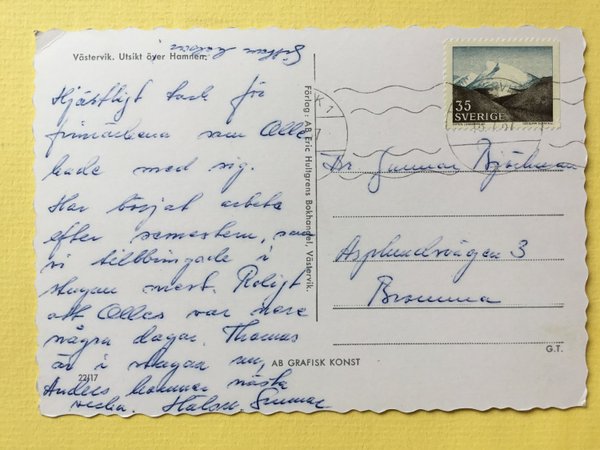 Västervik. Utsikt över Hamnen.
Hjärtligt tack för
frimärkena som Olle
hade med sig.
Har börjat arbeta
efter semestern, som
vi tillbringade i
stugan mest. Roligt
att Olles var nere
några dagar. Thomas
är i stugan nu,
Anders kommer nästa
vecka.
22/17
Förlag: AB Eric Hultgrens Bokhandel, Västervik.
AB GRAFISK KONST
35
SVERIGE
Dr Gunnar Björkman
Asplundsvägen 3
Bromma
G.T.